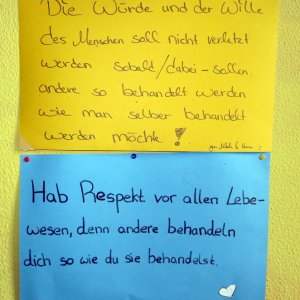 Die Würde und der Wille
des Menschen soll nicht verletzt
werden sobald/dabei - sollen
andere so behandelt werden
wie man selber behandelt
werden möchte !
Hab Respekt vor allen Lebe-
wesen, denn andere behandeln
dich so wie du sie behandelst.